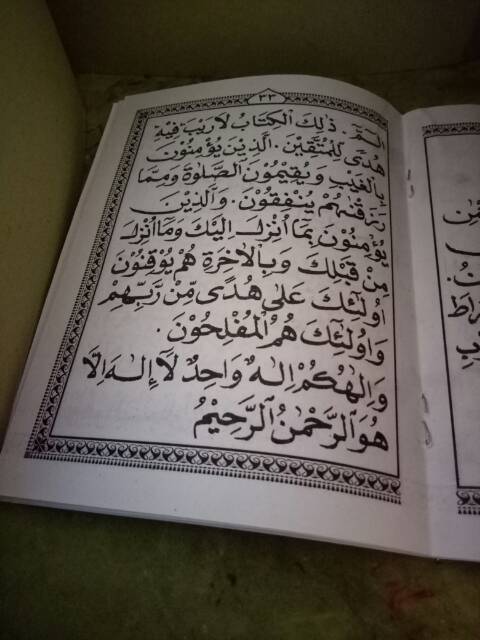 ٣٣
الٓمّٓ. ذٰلِكَ الْكِتَابُ لَارَيْبَ فِيْهِ
هُدًى لِلْمُتَّقِيْنَ. الَّذِيْنَ يُؤْمِنُوْنَ
بِالْغَيْبِ وَيُقِيْمُوْنَ الصَّلَاوةَ وَمِمَّا
رَزَقْنٰهُمْ يُنْفِقُوْنَ. وَالَّذِيْنَ
يُؤْمِنُوْنَ بِمَا اُنْزِلَ اِلَيْكَ وَمَا اُنْزِلَ
مِنْ قَبْلِكَ وَبِالْاٰخِرَةِ هُمْ يُوْقِنُوْنَ
اُولٰئِكَ عَلٰى هُدًى مِّنْ رَّبِّهِمْ
وَاُولٰئِكَ هُمُ الْمُفْلِحُوْنَ.
وَاِلٰهُكُمْ اِلٰهٌ وَاحِدٌ لَآاِلٰهَ اِلَّا
هُوَ الرَّحْمٰنُ الرَّحِيْمُ